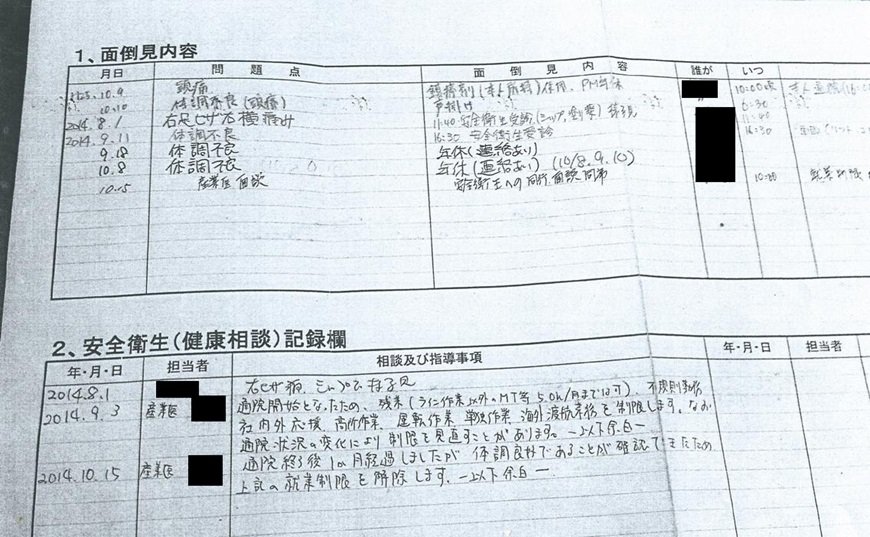 1、面倒見内容
月日 問題点 面倒見内容 誰が いつ
10.9 頭痛 頭痛剤 10:00
10.10 体調不良(頭痛) 声掛け 6:30
2014.8.1 右足ヒザ右横痛み 11:40 安全衛生受診 11:40
2014.9.11 体調不良 16:30 安全衛生受診 16:30
9.18 体調不良 年休(連絡あり)
10.8 体調不良 年休(連絡あり)(10/8.9.10)
10.15 産業医面談 安全衛生への同行、面談同席 10:30
2、安全衛生(健康相談)記録欄
年・月・日 担当者 相談及び指導事項 年・月・日 担当者
2014.8.1 右ヒザ痛、
2014.9.3 産業医 通院開始となったため、残業(ライン作業以外のMT等 5.0h/月までは可)、不規則勤務
社内外応援、高所作業、運転作業、単独作業、海外渡航 を制限します。なお
通院状況の変化により制限を見直すことがあります。―以下余白―
2014.10.15 産業医 通院終了後1ヵ月経過しましたが体調良好であることが確認できたため
上記の就業制限を解除します。―以下余白―